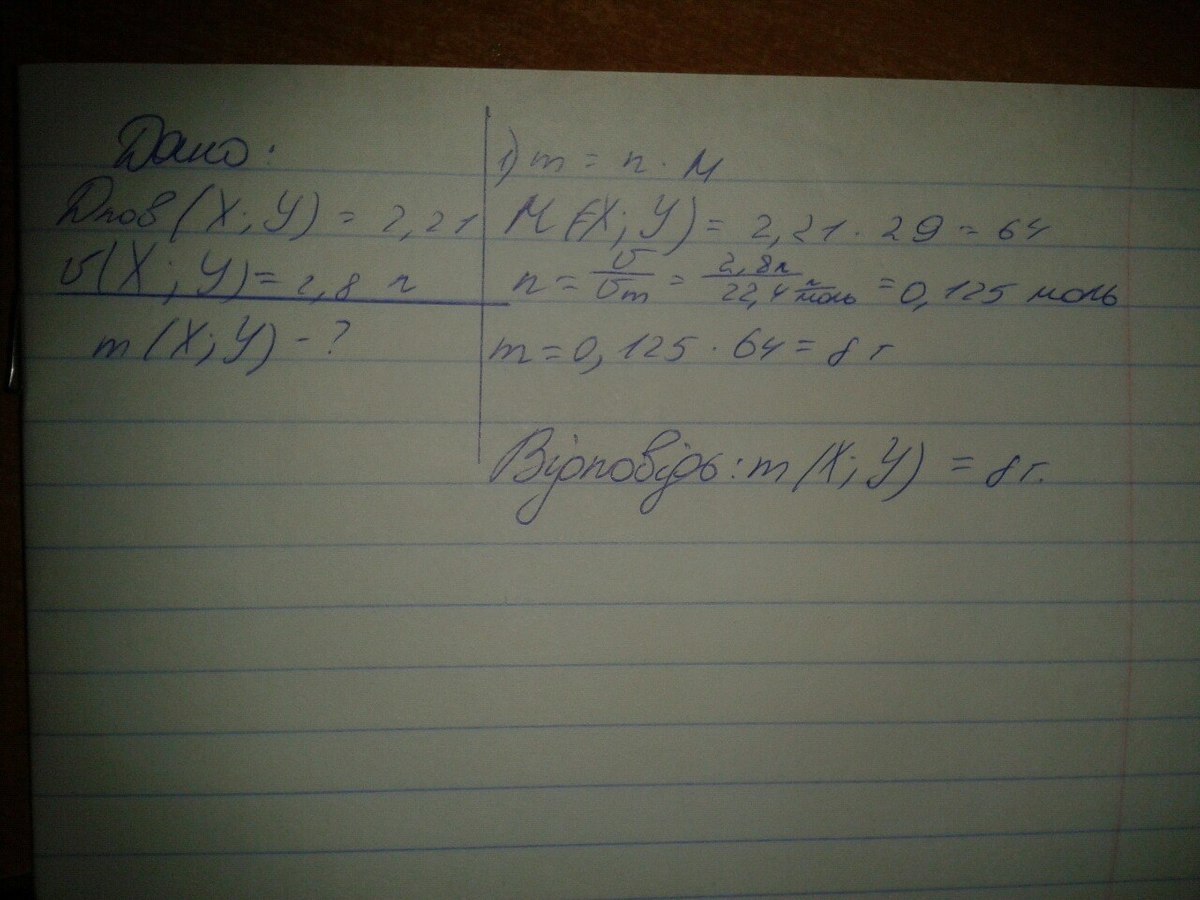 Дано:
Dпов (X; Y) = 2,21
υ(X; Y) = 2,8 л
m (X; Y) - ?
1) m = n · M
M (X; Y) = 2,21 · 29 = 64
n = υ/υm = 2,8л/22,4 л/моль = 0,125 моль
m = 0,125 · 64 = 8 г
Відповідь: m (X; Y) = 8 г.